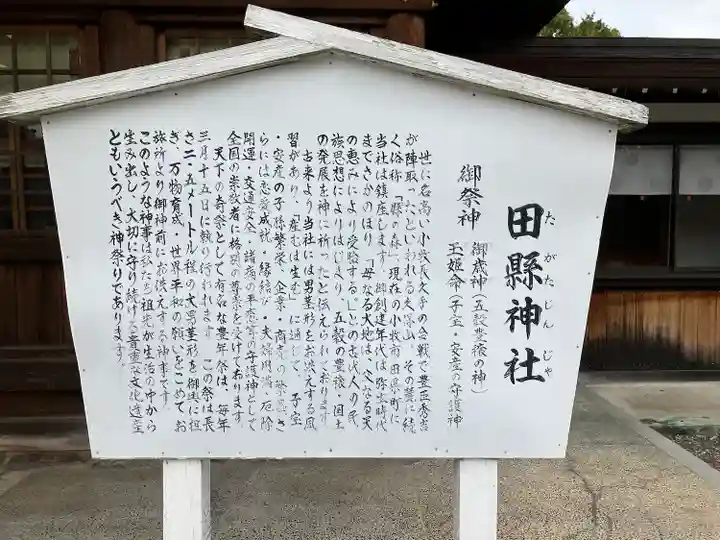 田縣神社
たがたじんじゃ
御祭神 御歳神(五穀豊穣の神)
玉姫命(子宝・安産の守護神
世に名高い小牧長久手の合戦で豊臣秀吉
が陣取ったといわれる久保山、その麓に続
く俗称「縣の森」現在の小牧市田県町に
当社は鎮座します。御創建年代は弥生時代
までさかのぼり、「母なる大地は、父なる天
の恵みにより受胎する」との古代人の民
族思想によりはじまり、五穀の豊穣・国土
の発展を神に祈ったと伝えられております
古来より当社には男茎形をお供えする風
習があり、「産むは生む」に通じて、子宝
・安産の子孫繁栄、企業・商売の繁盛、さ
らには恋愛成就・縁結び・夫婦円満・厄除
開運・交通安全・諸病の平癒等の守護神として
全国の崇敬者に格別の尊崇を受けております
天下の奇祭として有名な豊年祭は、毎年
三月十五日に執り行われます。この祭は長
さ二・五メートル程の大男茎形を御輿に担
ぎ、万物育成・世界平和の願いをこめて、お
旅所より御神前にお供えする神事です
このような神事は私たち祖先が生活の中から
生み出し、大切に守り続ける貴重な文化遺産
ともいうべき神祭りであります。